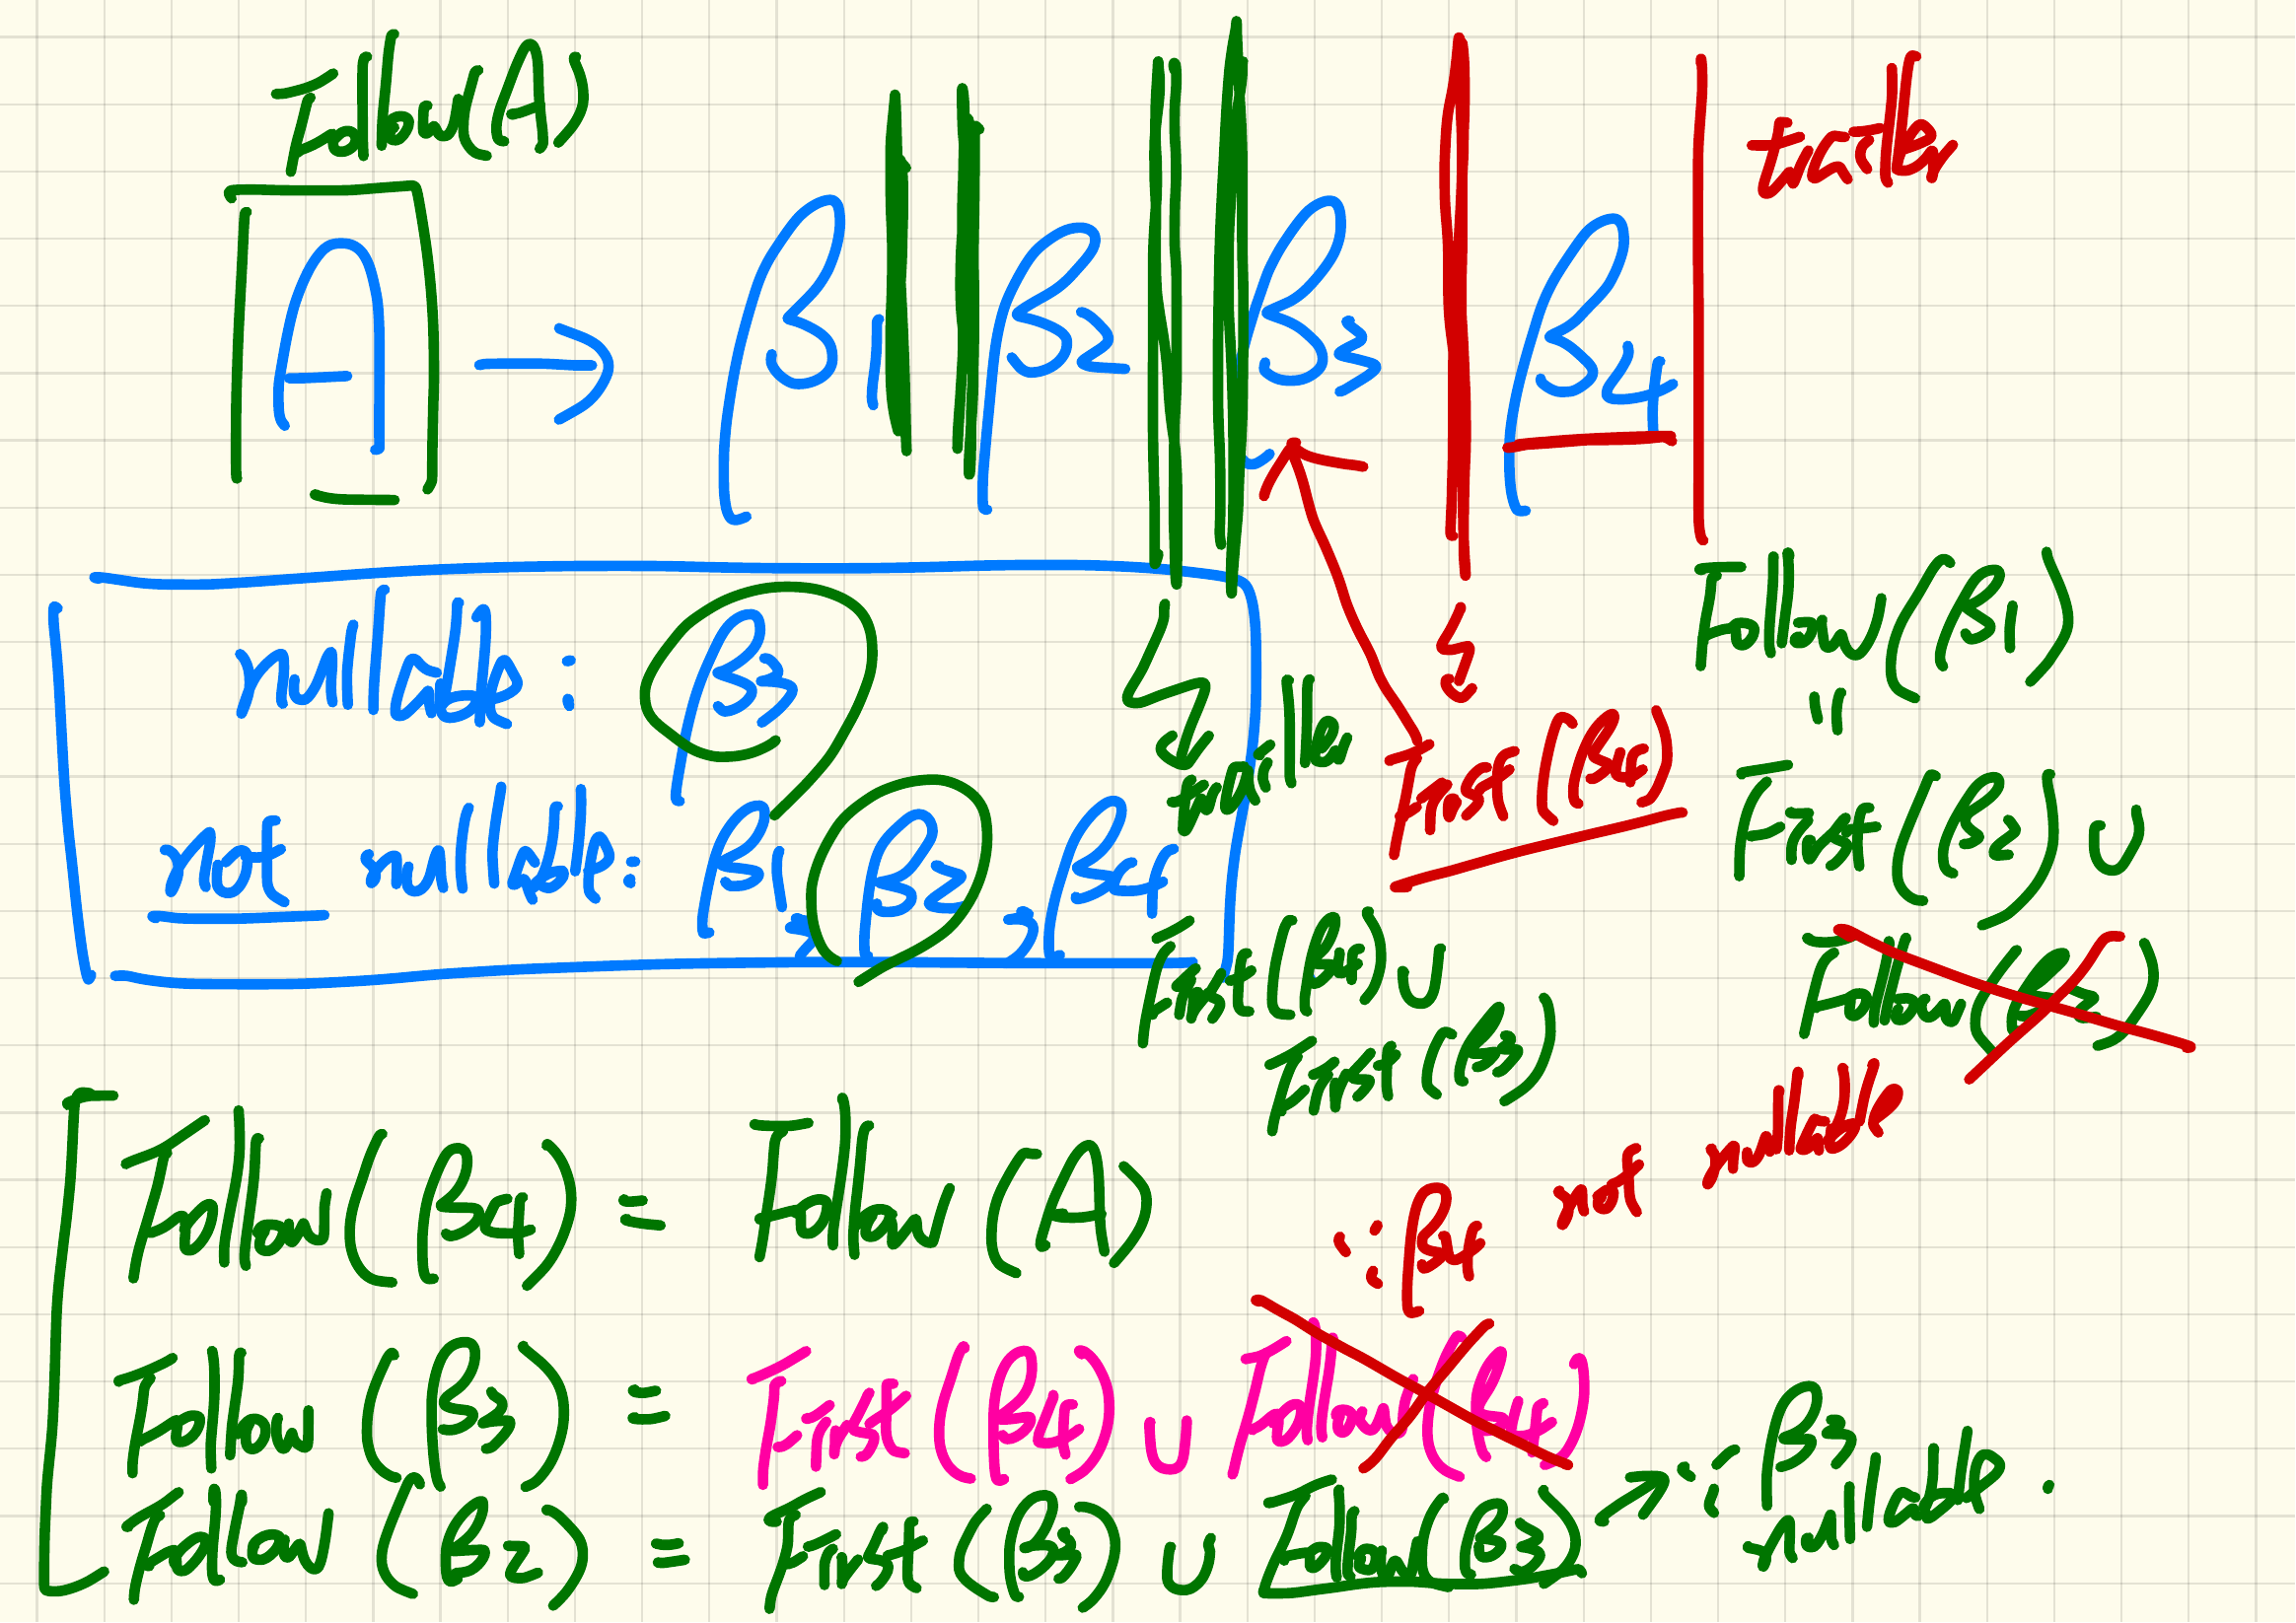 Follow(A)
trailer
A → β1 β2 β3 β4
nullable: β3
not nullable: β1, β2, β4
trailer
First(β4)
First(β4) ∪
First(β3)
Follow(β1)
=
First(β2) ∪
Follow(β2)
∵ β4 not nullable
Follow(β4) = Follow(A)
Follow(β3) = First(β4) ∪ Follow(β4)
Follow(β2) = First(β3) ∪ Follow(β3) → ∵ β3
nullable.